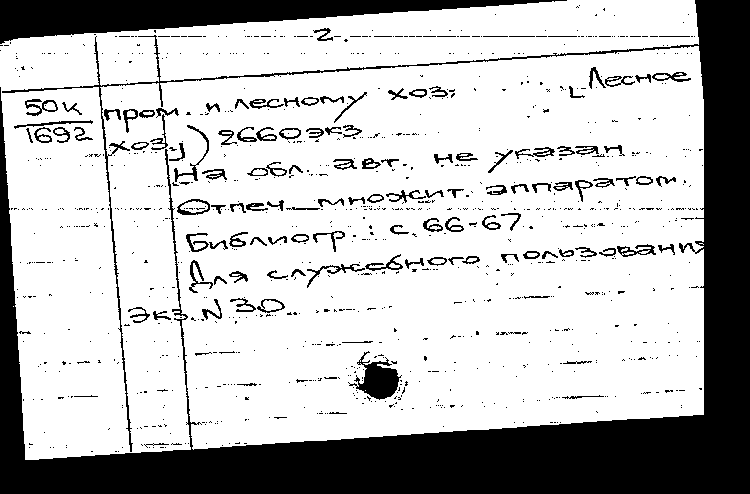 2.
50к пром. и лесному хоз; [Лесное
1692 хоз.]) 2660экз
На обл. авт. не указан
Отпеч. множит. аппаратом.
Библиогр.: с. 66-67.
Для служебного пользования
Экз. N 30